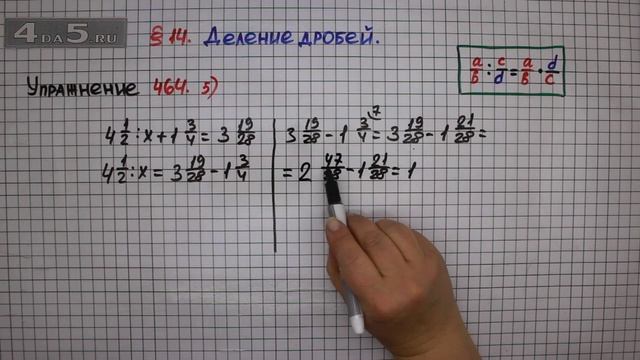 4DA5.RU
§ 14. Деление дробей.
a/b : c/d = a/b · d/c
Упражнение 464. 5)
4 1/2 : x + 1 3/4 = 3 19/28
4 1/2 : x = 3 19/28 - 1 3/4
3 19/28 - 1 3/4 ^7 = 3 19/28 - 1 21/28 =
= 2 47/28 - 1 21/28 = 1